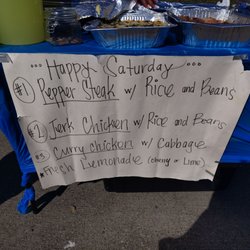 ...Happy Saturday...
#1 Pepper Steak w/ Rice and Beans
#2 Jerk Chicken w/ Rice and Beans
#3 Curry chicken w/ Cabbage
*Frech Lemonade (cherry or Lime)